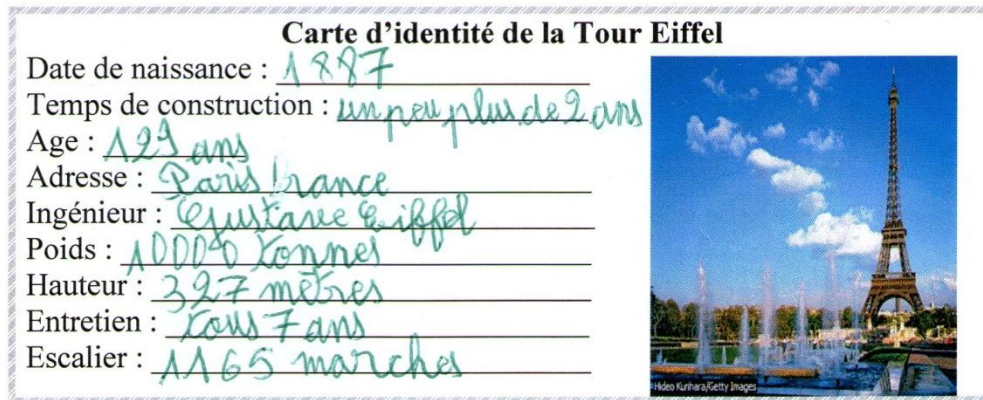 Carte d'identité de la Tour Eiffel
Date de naissance : 1887
Temps de construction : un peu plus de 2 ans
Age : 129 ans
Adresse : Paris France
Ingénieur : Gustave Eiffel
Poids : 10000 tonnes
Hauteur : 327 mètres
Entretien : tous 7 ans
Escalier : 1165 marches
Hideo Kurihara/Getty Images